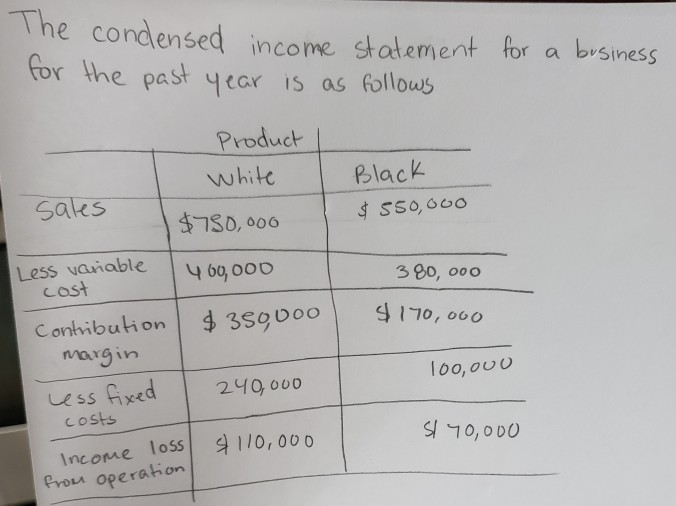 The condensed income statement for a business
for the past year is as follows
Product
White Black
Sales $750,000 $550,000
Less variable cost 400,000 380,000
Contribution margin $350,000 $170,000
Less fixed costs 240,000 100,000
Income loss from operation $110,000 $70,000